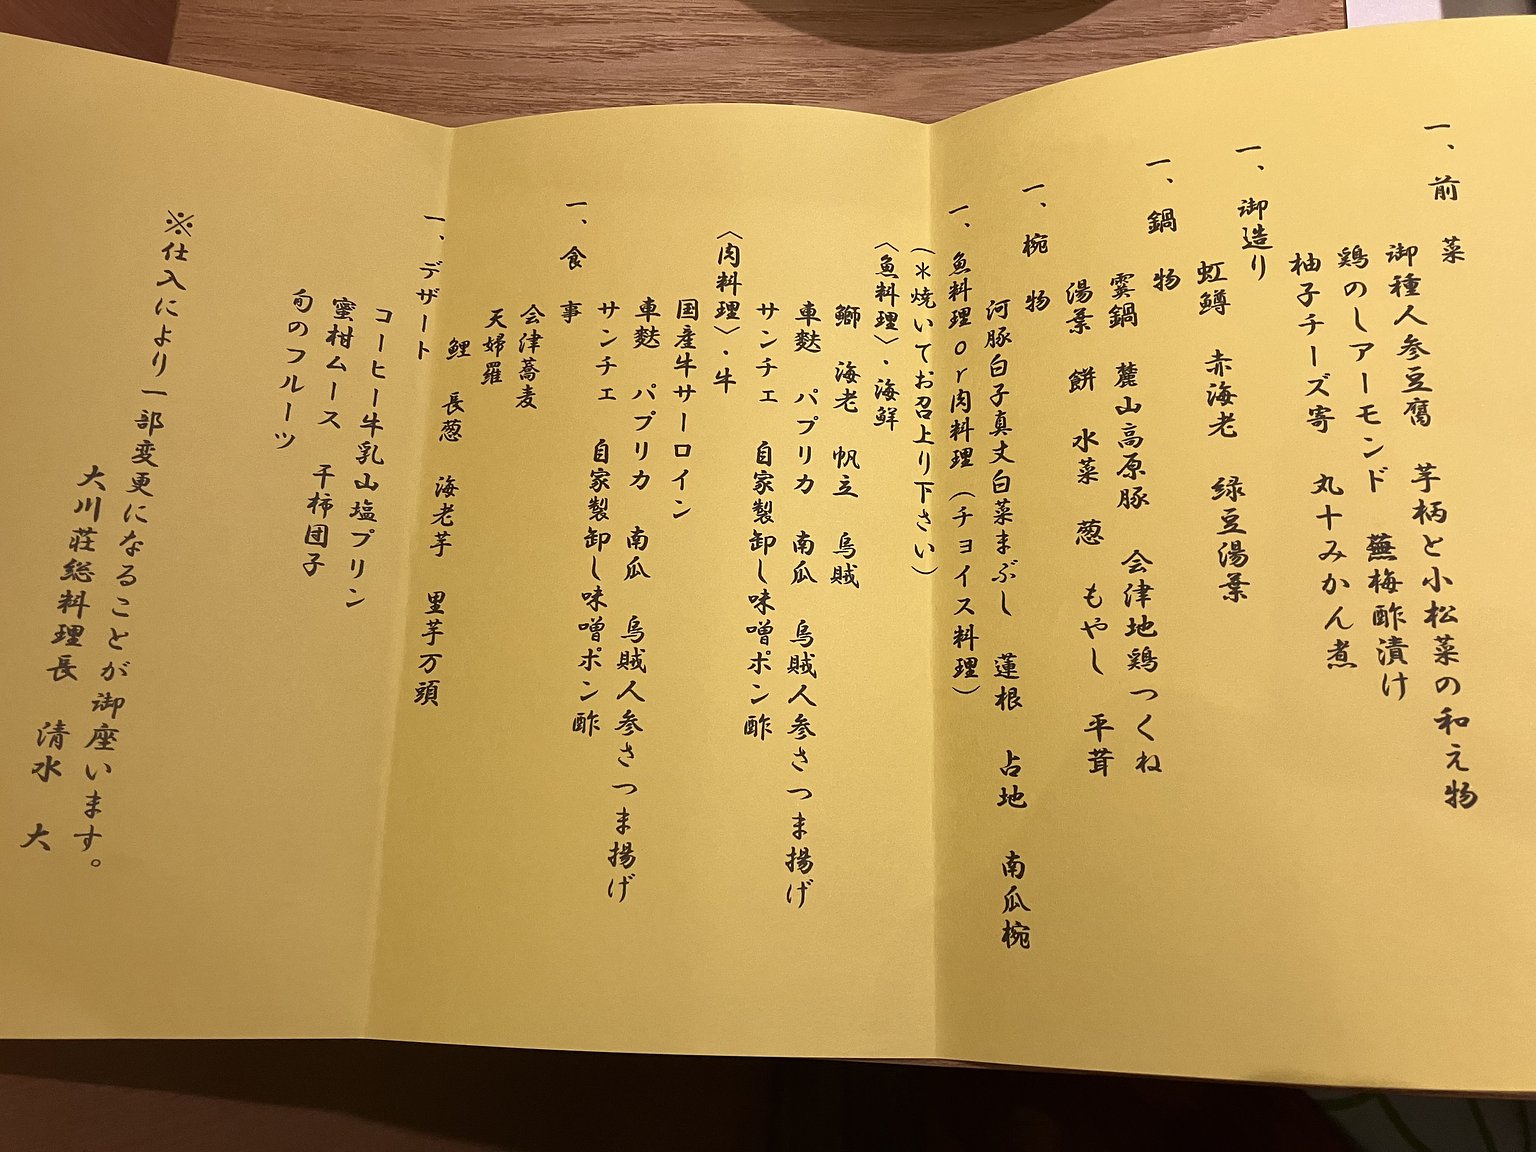 一、前　菜
御種人参豆腐　芋柄と小松菜の和え物
鶏のしアーモンド　蕪梅酢漬け
柚子チーズ寄　丸十みかん煮
一、御造り
虹鱒　赤海老　緑豆湯葉
一、鍋　物
霙鍋　麓山高原豚　会津地鶏つくね
湯葉　餅　水菜　葱　もやし　平茸
一、椀　物
河豚白子真丈白菜まぶし　蓮根　占地　南瓜椀
一、魚料理or肉料理（チョイス料理）
（＊焼いてお召上り下さい）
〈魚料理〉・海鮮
鰤　海老　帆立　烏賊
車麩　パプリカ　南瓜　烏賊人参さつま揚げ
サンチェ　自家製卸し味噌ポン酢
〈肉料理〉・牛
国産牛サーロイン
車麩　パプリカ　南瓜　烏賊人参さつま揚げ
サンチェ　自家製卸し味噌ポン酢
一、食　事
会津蕎麦
天婦羅
鯉　長葱　海老芋　里芋万頭
一、デザート
コーヒー牛乳山塩プリン
蜜柑ムース　干柿団子
旬のフルーツ
※仕入により一部変更になることが御座います。
大川荘総料理長　清水　大